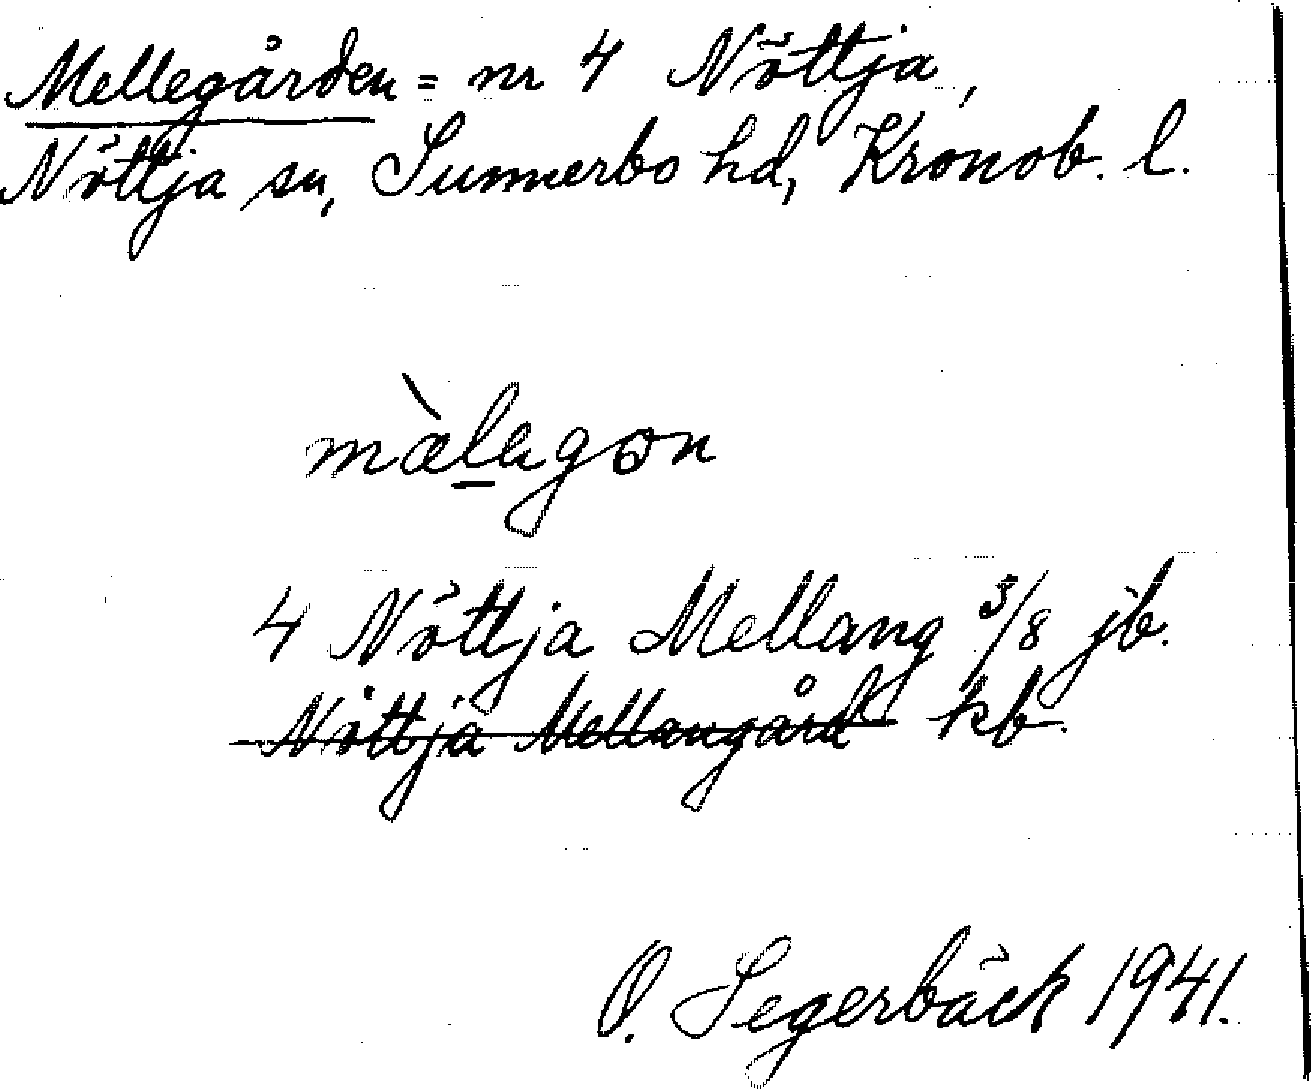 Mellegården = nr 4 Nöttja,
Nöttja sn, Sunnerbo hd, Kronob. l.
mæ̀l̲egɔn
4 Nöttja Mellang 3/8 jb.
Nöttja Mellangård kb.
O. Segerbäck 1941.